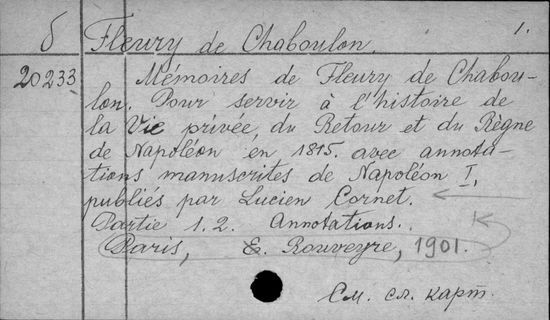 б Fleury de Chaboulon. 1.
20233 Mémoires de Fleury de Chabou-
lon. Pour servir à l'histoire de
la Vie privée, du Retour et du Règne
de Napoléon en 1815. avec annota-
tions manuscrites de Napoléon I,
publiés par Lucien Cornet.
Partie 1.2. Annotations.
Paris, E. Rouveyre, 1901.
См. сл. карт.